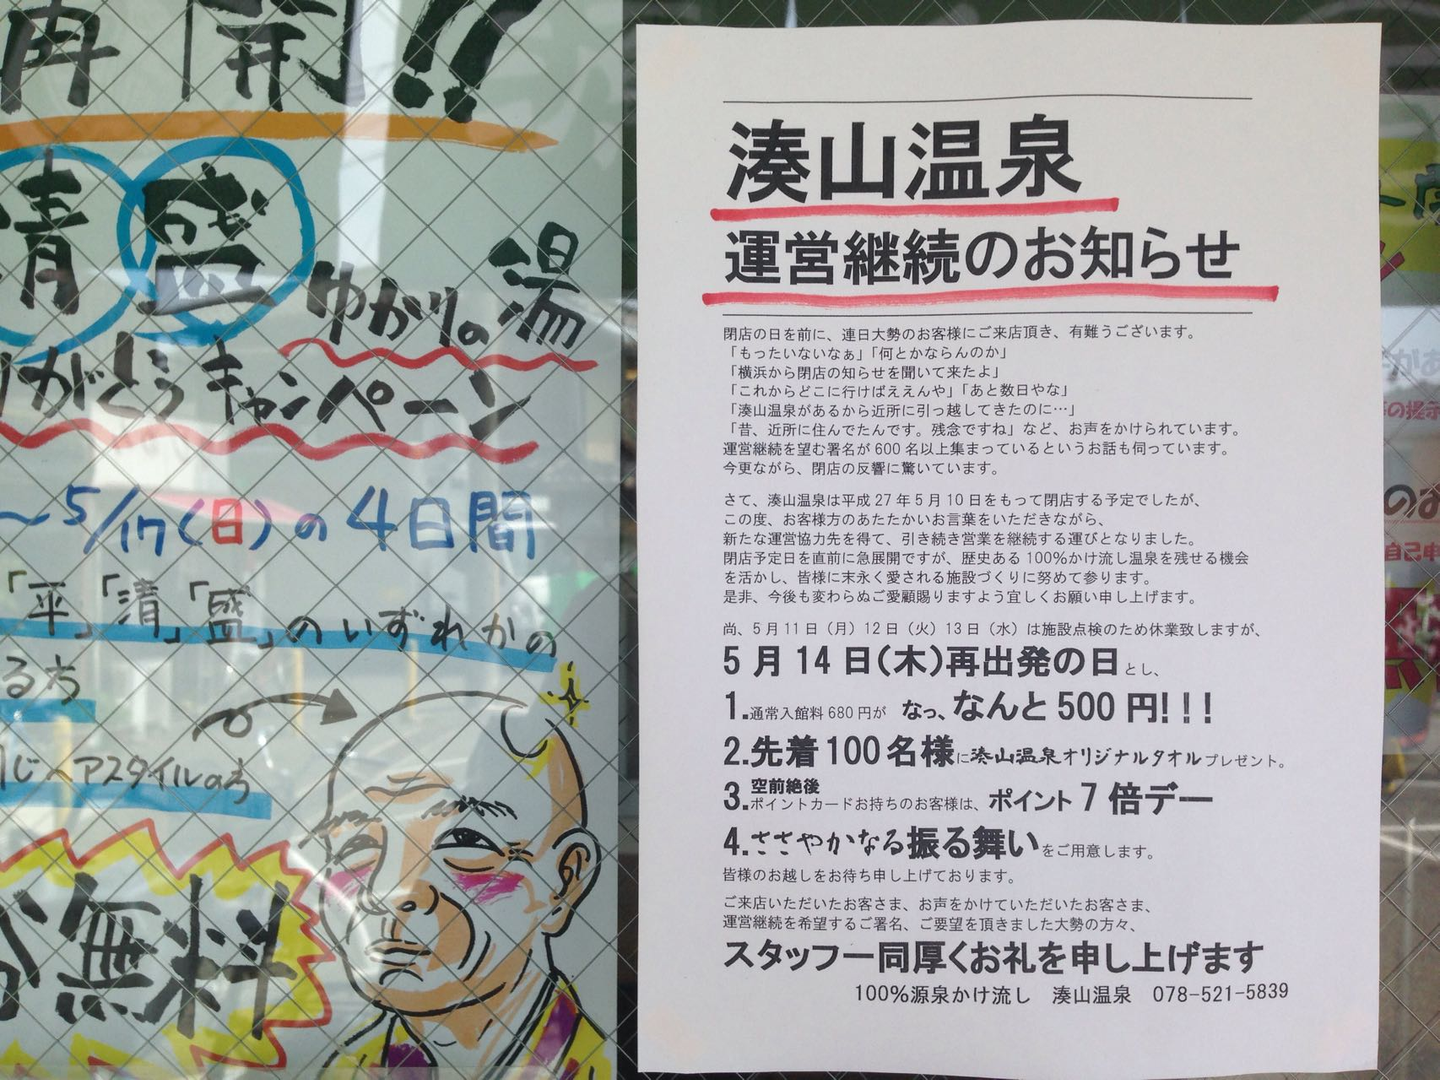 再開!!
清盛ゆかりの湯
りがとうキャンペーン
〜5/17(日)の4日間
「平」「清」「盛」のいずれかの
る方
じヘアスタイルの方
無料
湊山温泉
運営継続のお知らせ
閉店の日を前に、連日大勢のお客様にご来店頂き、有難うございます。
「もったいないなぁ」「何とかならんのか」
「横浜から閉店の知らせを聞いて来たよ」
「これからどこに行けばええんや」「あと数日やな」
「湊山温泉があるから近所に引っ越してきたのに…」
「昔、近所に住んでたんです。残念ですね」など、お声をかけられています。
運営継続を望む署名が600名以上集まっているというお話も伺っています。
今更ながら、閉店の反響に驚いています。
さて、湊山温泉は平成27年5月10日をもって閉店する予定でしたが、
この度、お客様方のあたたかいお言葉をいただきながら、
新たな運営協力先を得て、引き続き営業を継続する運びとなりました。
閉店予定日を直前に急展開ですが、歴史ある100%かけ流し温泉を残せる機会
を活かし、皆様に末永く愛される施設づくりに努めて参ります。
是非、今後も変わらぬご愛顧賜りますよう宜しくお願い申し上げます。
尚、5月11日(月)12日(火)13日(水)は施設点検のため休業致しますが、
5月14日(木)再出発の日とし、
1.通常入館料680円が なっ、なんと500円!!!
2.先着100名様に湊山温泉オリジナルタオルプレゼント。
3.空前絶後
ポイントカードお持ちのお客様は、ポイント7倍デー
4.ささやかなる振る舞いをご用意します。
皆様のお越しをお待ち申し上げております。
ご来店いただいたお客さま、お声をかけていただいたお客さま、
運営継続を希望するご署名、ご要望を頂きました大勢の方々、
スタッフ一同厚くお礼を申し上げます
100%源泉かけ流し 湊山温泉 078-521-5839
がお
の掲示
のお
自己申